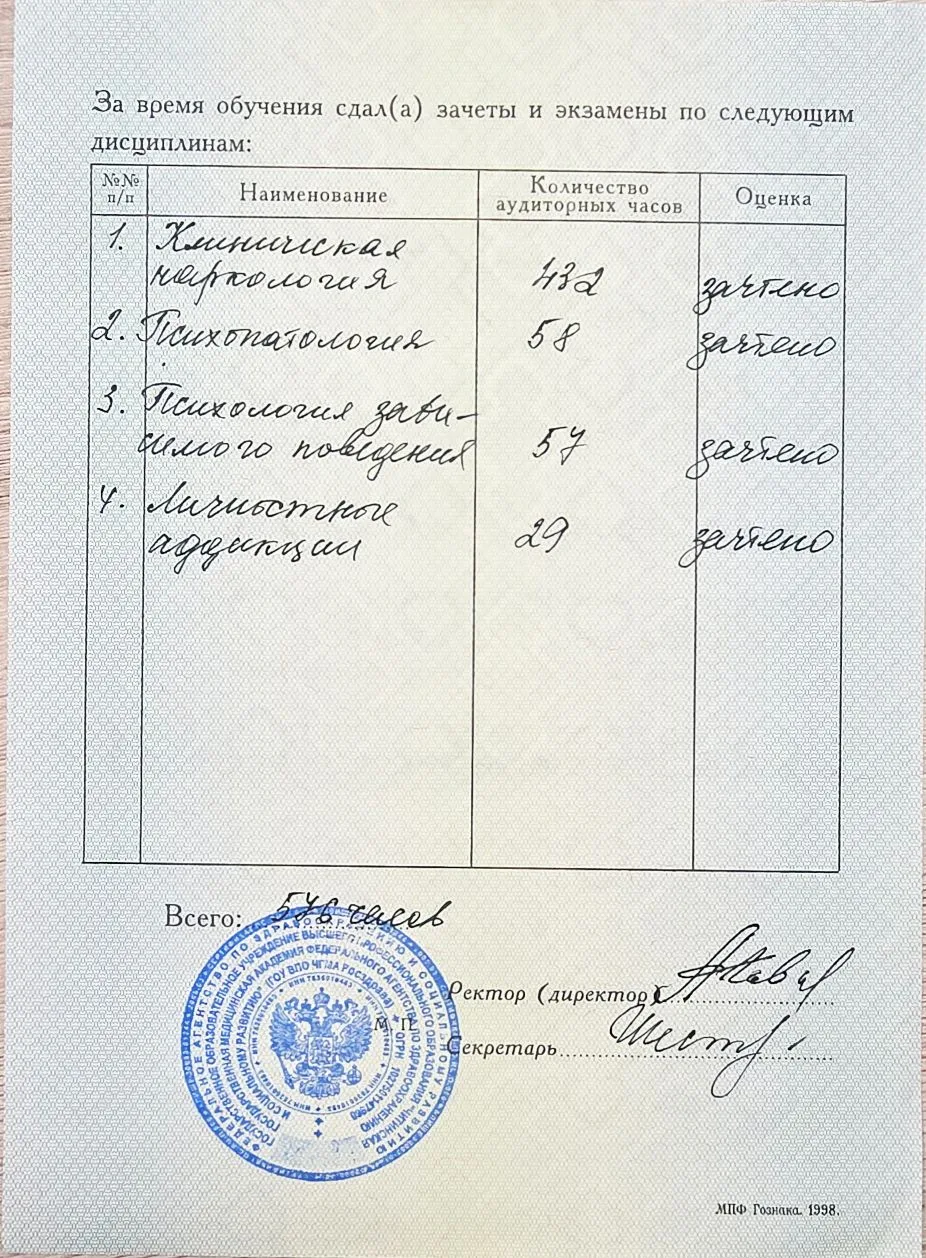 За время обучения сдал(а) зачеты и экзамены по следующим
дисциплинам:
№№ п/п Наименование Количество аудиторных часов Оценка
1. Клиническая
наркология 432 зачтено
2. Психопатология 58 зачтено
3. Психология зави-
симого поведения 57 зачтено
4. Личностные
аддикции 29 зачтено
Всего: 576 часов
Ректор (директор)
М. П.
Секретарь
ФЕДЕРАЛЬНОЕ АГЕНТСТВО ПО ЗДРАВООХРАНЕНИЮ И СОЦИАЛЬНОМУ РАЗВИТИЮ
ГОСУДАРСТВЕННОЕ ОБРАЗОВАТЕЛЬНОЕ УЧРЕЖДЕНИЕ ВЫСШЕГО ПРОФЕССИОНАЛЬНОГО ОБРАЗОВАНИЯ ЧИТИНСКАЯ
ГОСУДАРСТВЕННАЯ МЕДИЦИНСКАЯ АКАДЕМИЯ ФЕДЕРАЛЬНОГО АГЕНТСТВА ПО ЗДРАВООХРАНЕНИЮ
И СОЦИАЛЬНОМУ РАЗВИТИЮ (ГОУ ВПО ЧГМА Росздрава) ОГРН
МПФ Гознака. 1998.